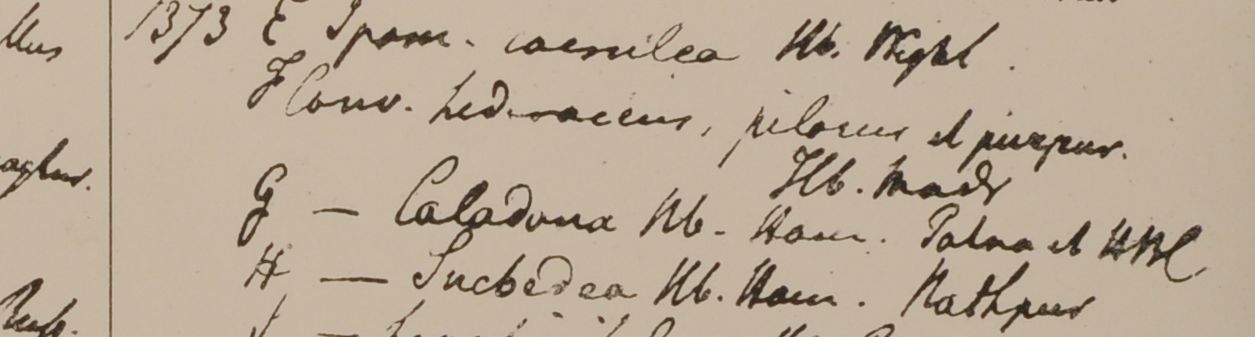 llus
1373 E Ipom. coerulea Hb. Wight.
F Conv. hederaceus, pilosus et purpur.
Hb. Madr
G — Caladona Hb. Ham. Patna et HBC
H — Sucbedea Hb. Ham. Nathpur